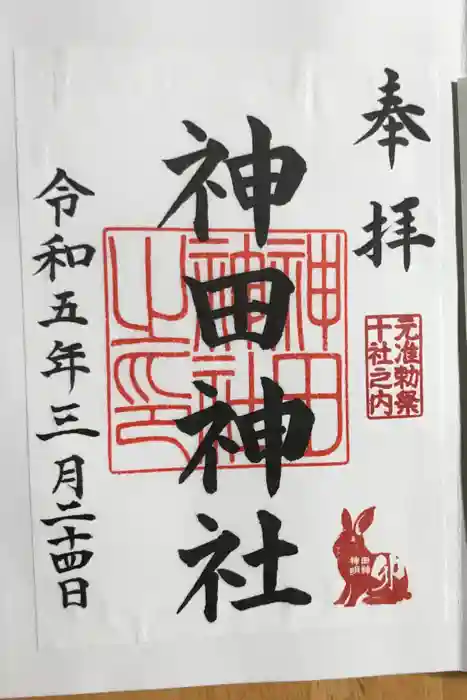 奉拝
元准勅祭
十社之内
神田神社
神田
神社
之印
令和五年三月二十四日
神田
明神
卯